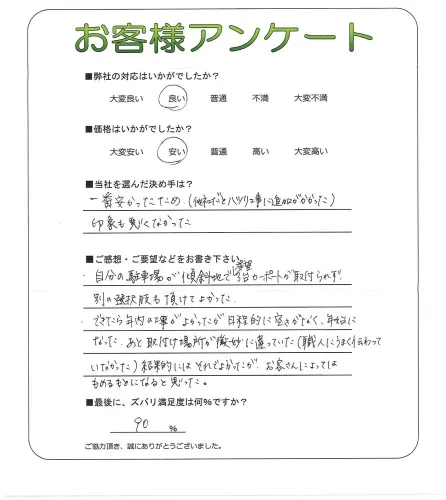 お客様アンケート
■弊社の対応はいかがでしたか？
大変良い 良い 普通 不満 大変不満
■価格はいかがでしたか？
大変安い 安い 普通 高い 大変高い
■当社を選んだ決め手は？
一番安かったため（他社だとハツリ工事に追加がかかった）
印象も悪くなかった
■ご感想・ご要望などをお書き下さい。
・自分の駐車場が傾斜地で希望カーポートが取付られず、
別の選択肢も頂けてよかった。
・できたら年内の工事がよかったが日程的に空きがなく、年始に
なった。あと取付け場所が微妙に違っていた（職人にうまく伝わって
いなかった）結果的にはそれでよかったが、お客さんによっては
もめるもとになると思った。
■最後に、ズバリ満足度は何％ですか？
90 ％
ご協力頂き、誠にありがとうございました。